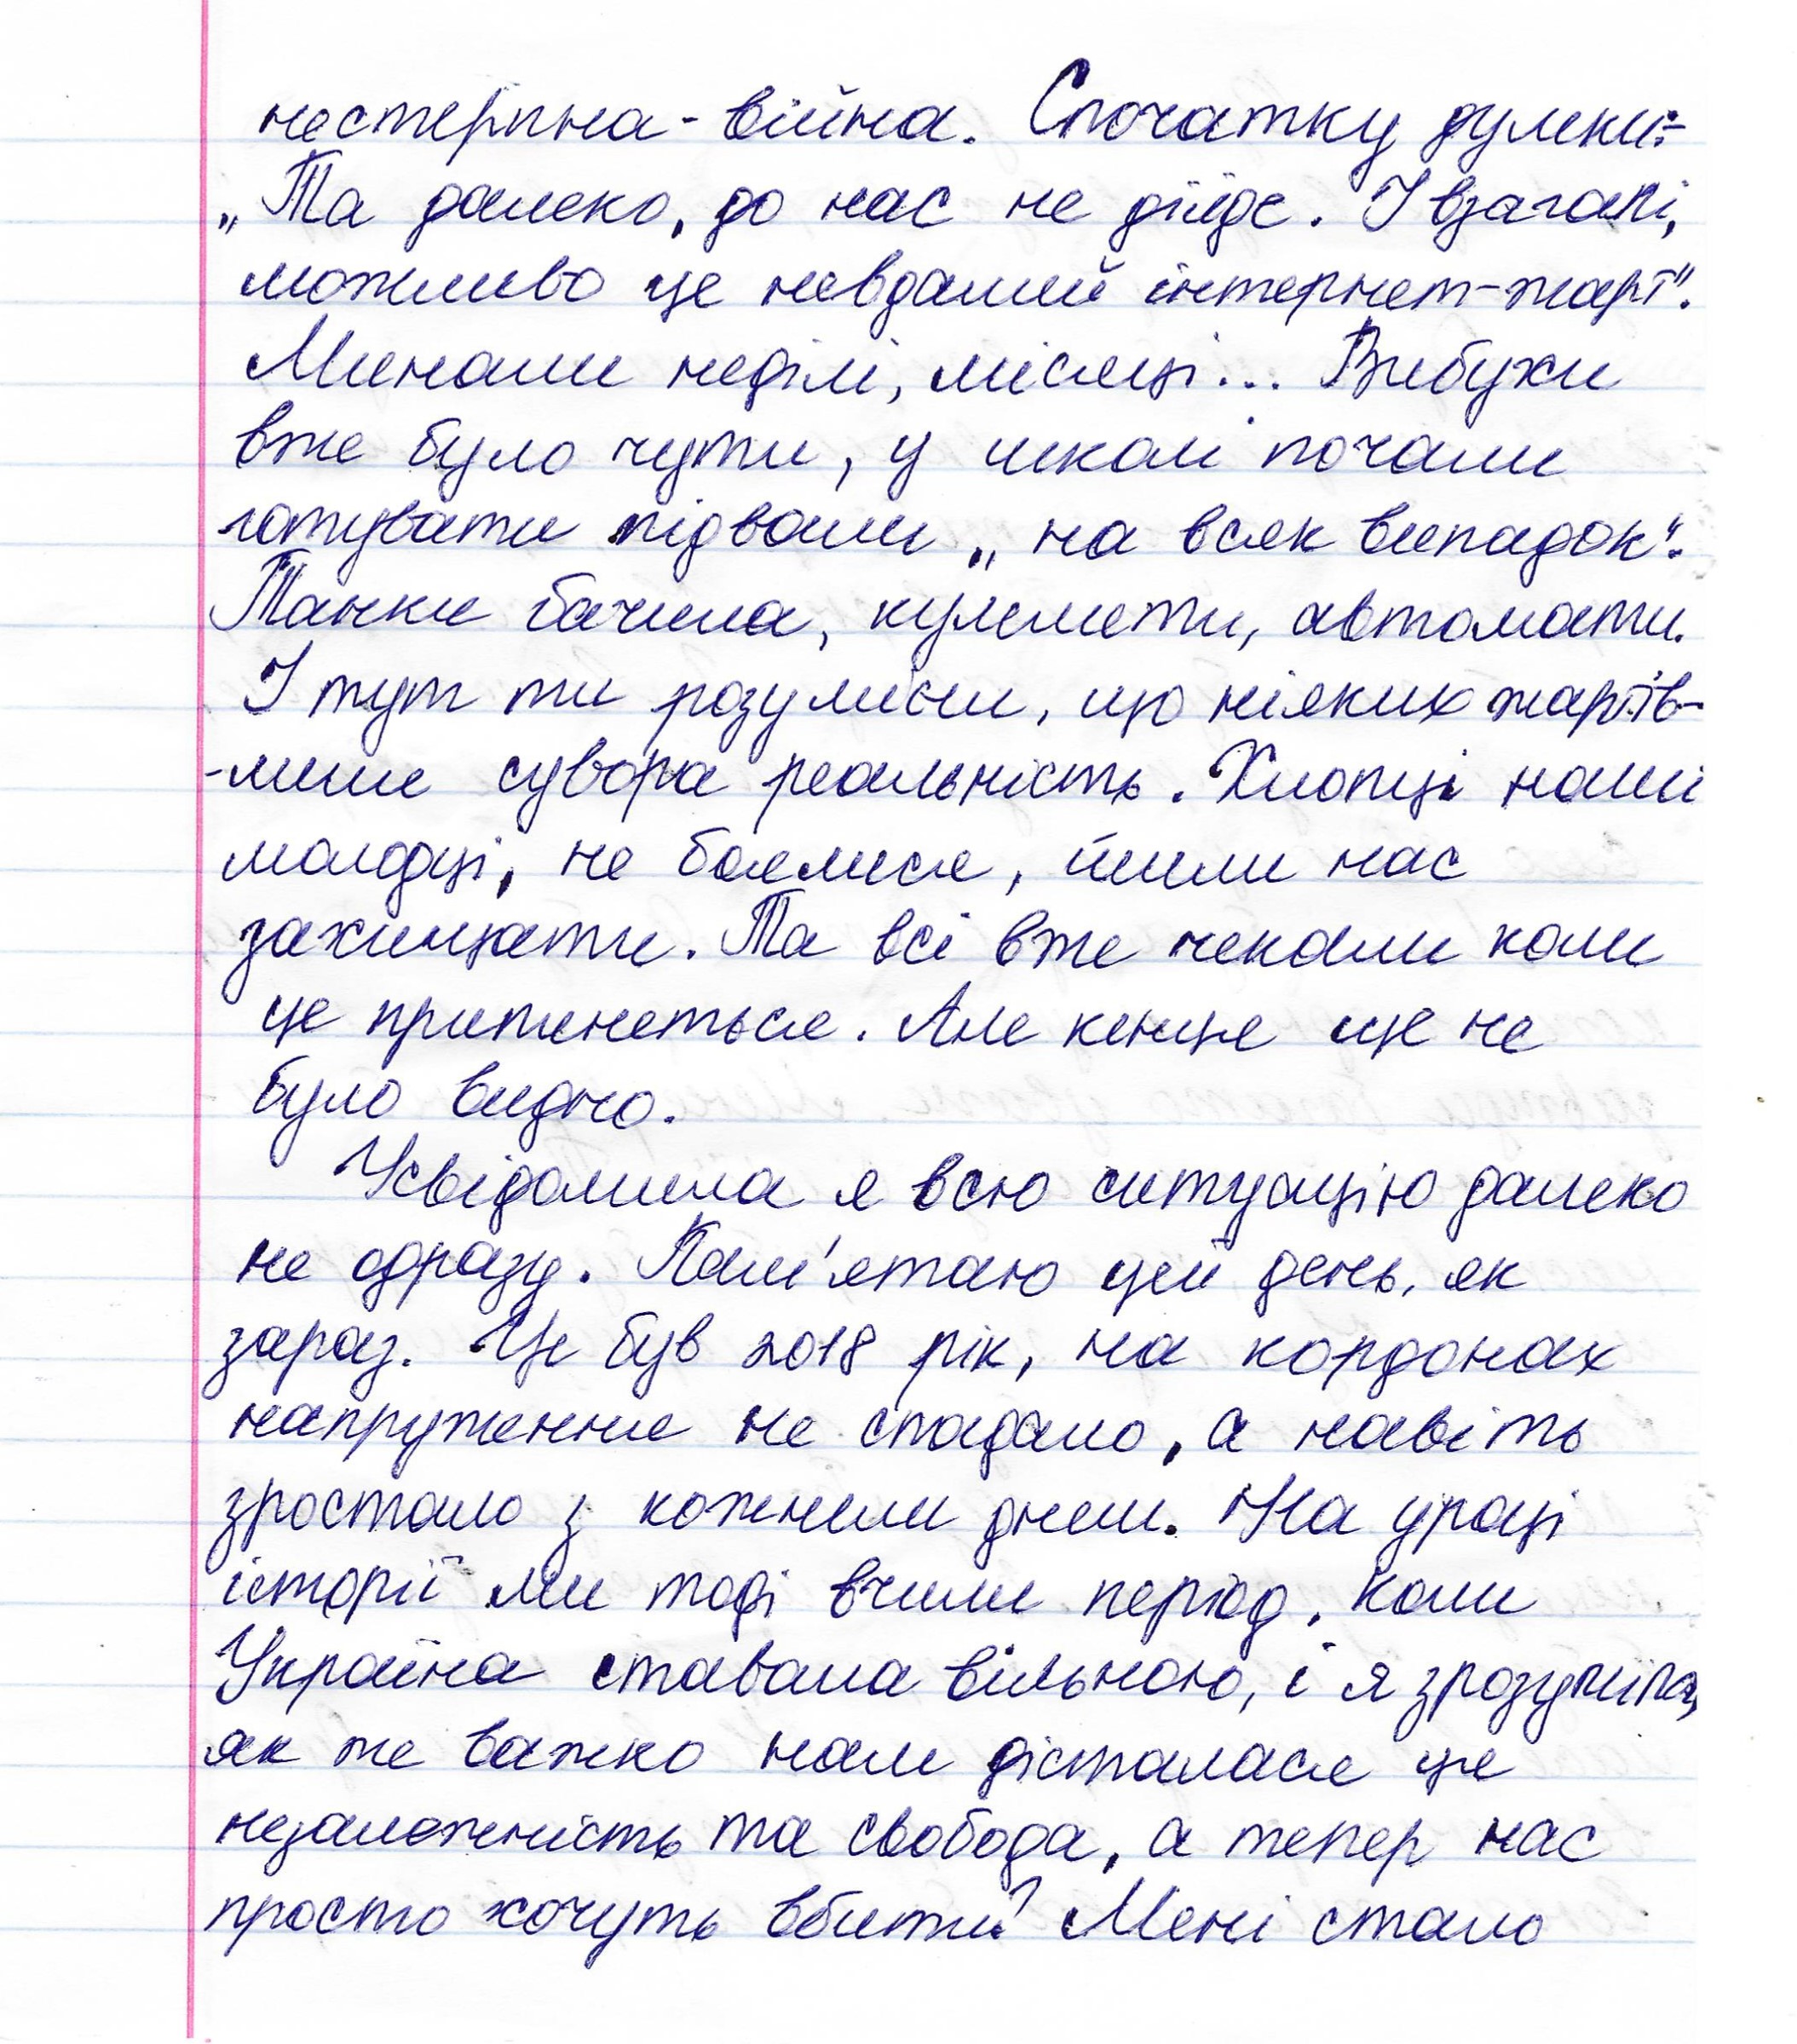 нестерпна - війна. Спочатку думки:-
„Та далеко, до нас не дійде. І взагалі,
можливо це невдалий інтернет-жарт".
Минали неділі, місяці... Вибухи
вже було чути, у школі почали
готувати підвали „на всяк випадок".
Танки бачила, кулемети, автомати.
І тут ти розумієш, що ніяких жартів-
-лише сувора реальність. Хлопці наші
молодці, не боялися, йшли нас
захищати. Та всі вже чекали коли
це припинеться. Але кенця ще не
було видно.
Усвідомила я всю ситуацію далеко
не одразу. Пам'ятаю цей день, як
зараз. Це був 2018 рік, на кордонах
напруження не спадало, а навіть
зростало з кожним днем. На уроці
історії ми тоді вчили період, коли
Україна ставала вільною, і я зрозуміла,
як же важко нам дісталася ця
незалежність та свобода, а тепер нас
просто хочуть вбити? Мені стало